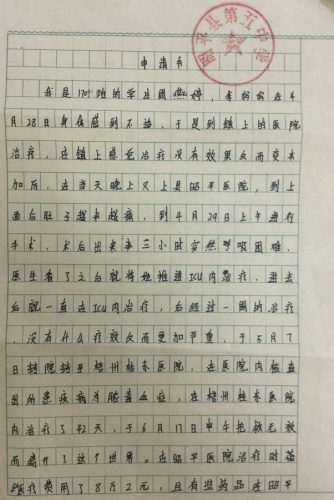 昭平县第五中学
申请书
我是170班的学生团 婷，李好家在4
月28日身体感到不适，于是到镇上的医院
治疗，在镇上感觉治疗没有效果反而变本
加厉，在当天晚上又上县昭平医院，到上
面后肚子越来越痛，到4月29日上午进行
手术，术后出来来三小时突然呼吸困难，
医生看了之后就将她推进ICU内治疗，进去
后就一直在ICU内治疗，后经过一周的治疗
，没有什么疗效反而更加严重，于5月7
日转院转至梧州桂东医院，在医院内检查
出所患疾病为脓毒血症，在梧州桂东医院
内治疗了42天，于6月17日中午抢救无效
而离开了这个世界。在昭平医院治疗时
医疗费用了8万2元，且有些药品在昭平